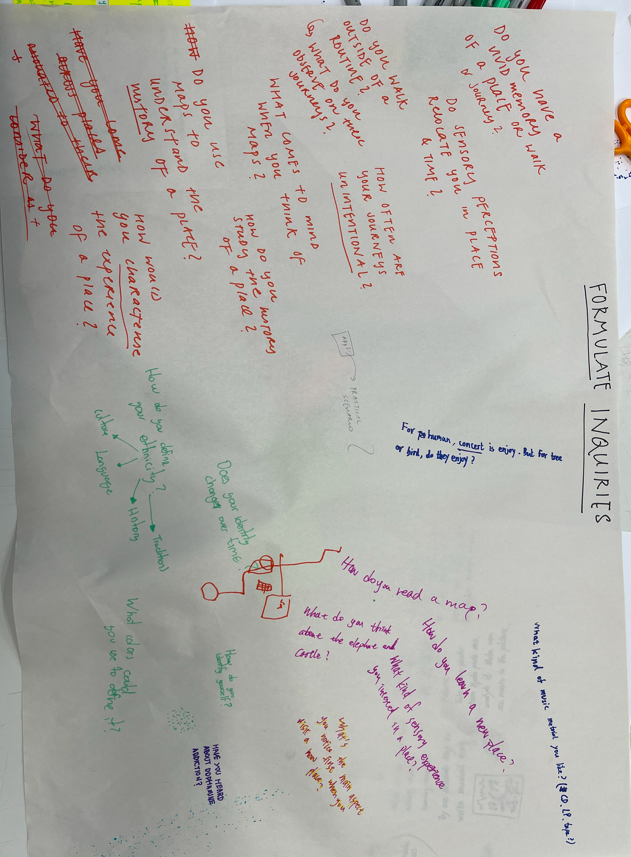 FORMULATE INQUIRIES
DO YOU HAVE A
VIVID MEMORY
OF A PLACE OR WALK
OR JOURNEY?
DO SENSORY PERCEPTIONS
RELOCATE YOU IN PLACE
& TIME?
DO YOU WALK
OUTSIDE OF A
ROUTINE?
WHAT DO YOU
OBSERVE ON THESE
JOURNEYS?
HOW OFTEN ARE
YOUR JOURNEYS
UNINTENTIONAL?
WHAT COMES TO MIND
WHEN YOU THINK OF
MAPS?
HOW DO YOU
STUDY THE HISTORY
OF A PLACE?
HOW DO YOU USE
MAPS TO
UNDERSTAND THE
HISTORY OF A PLACE?
HOW WOULD
YOU characterise
the experience
of a place?
HAVE YOU
WHAT DO YOU
PRACTICAL
SCENARIO
For human, concert is enjoy. But for tree
or bird, do they enjoy?
How do you define
your ethnicity?
Culture
Language
History
Tradition
Does your identity
change over time?
What colors could
you use to define it?
How do you
identify yourself?
How do you read a map?
What do you think
about the elephant and
castle?
How do you learn a new place?
What kind of sensory experience
you interested in a place?
What's the main aspect
you notice first when you
a new place?
HAVE YOU HEARD
ABOUT DOPAMINE
ADDICTION?
What kind of music you like? (CD. LP. tape?)